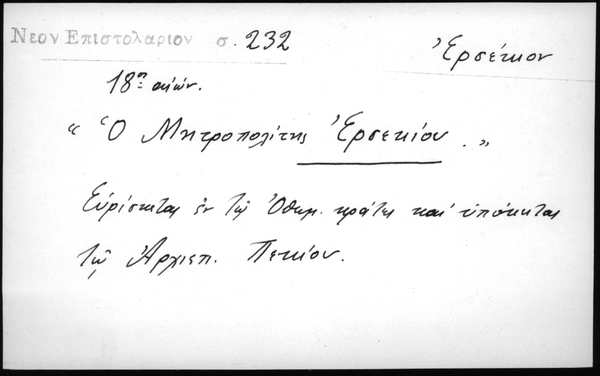 Νεον Επιστολαριον σ. 232
Ἐρσέκιον
18ος αἰών.
“ Ὁ Μητροπολίτης Ἐρσεκίου . ”
Εὑρίσκεται ἐν τῷ Ὀθωμ. κράτει καὶ ὑπόκειται
τῷ Ἀρχιεπ. Πεκίου.